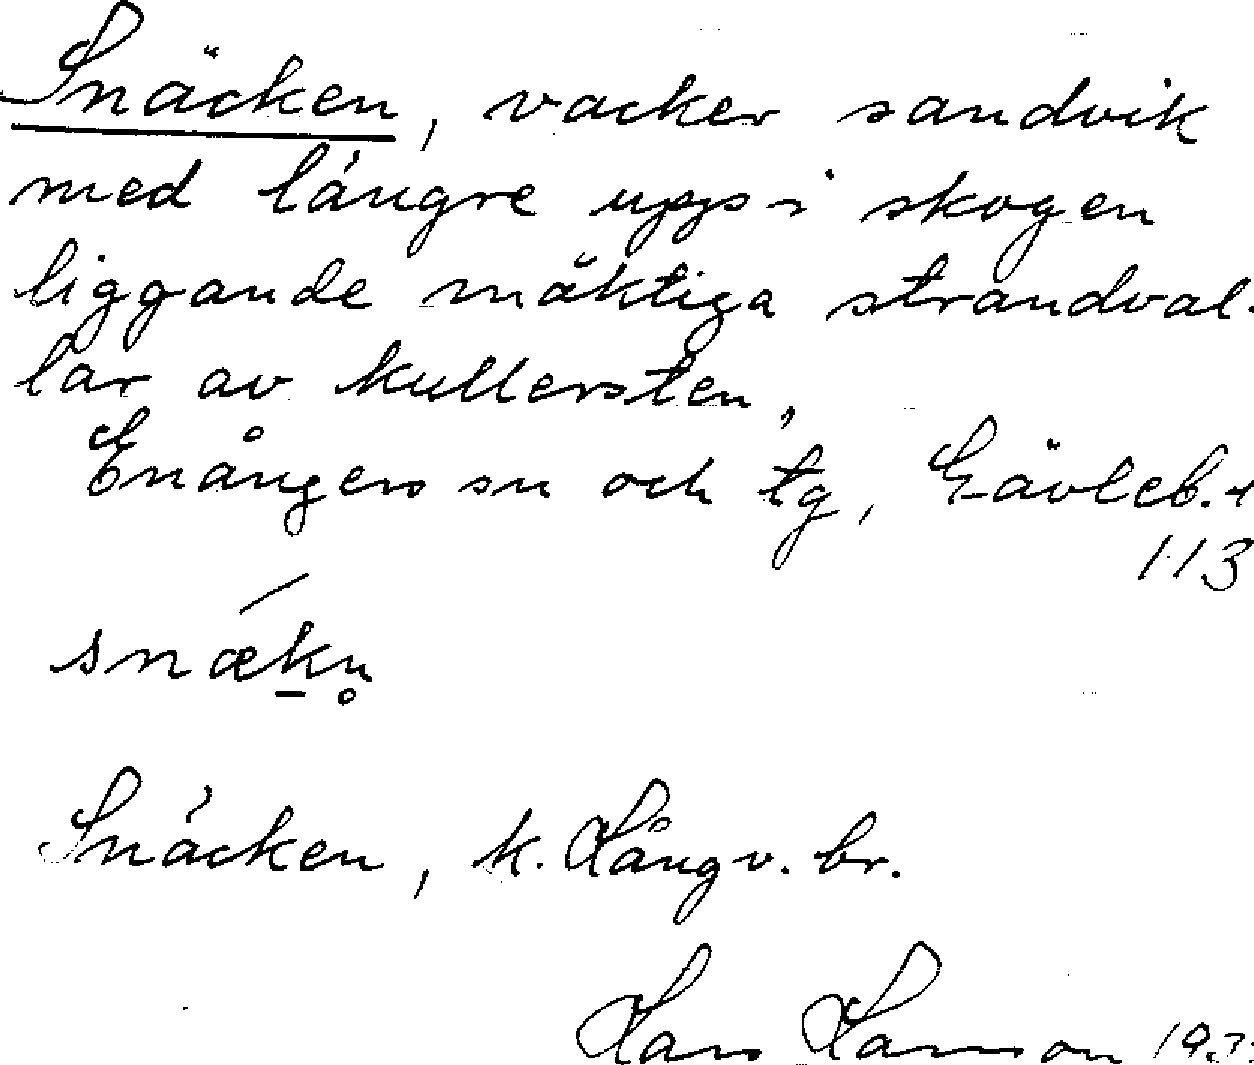 Snäcken, vacker sandvik
med längre upp i skogen
liggande mäktiga strandval-
lar av kullersten,
Enångers sn och tg, Gävleb.
113
snækn̥
Snäcken, k. Långv. br.
Lars